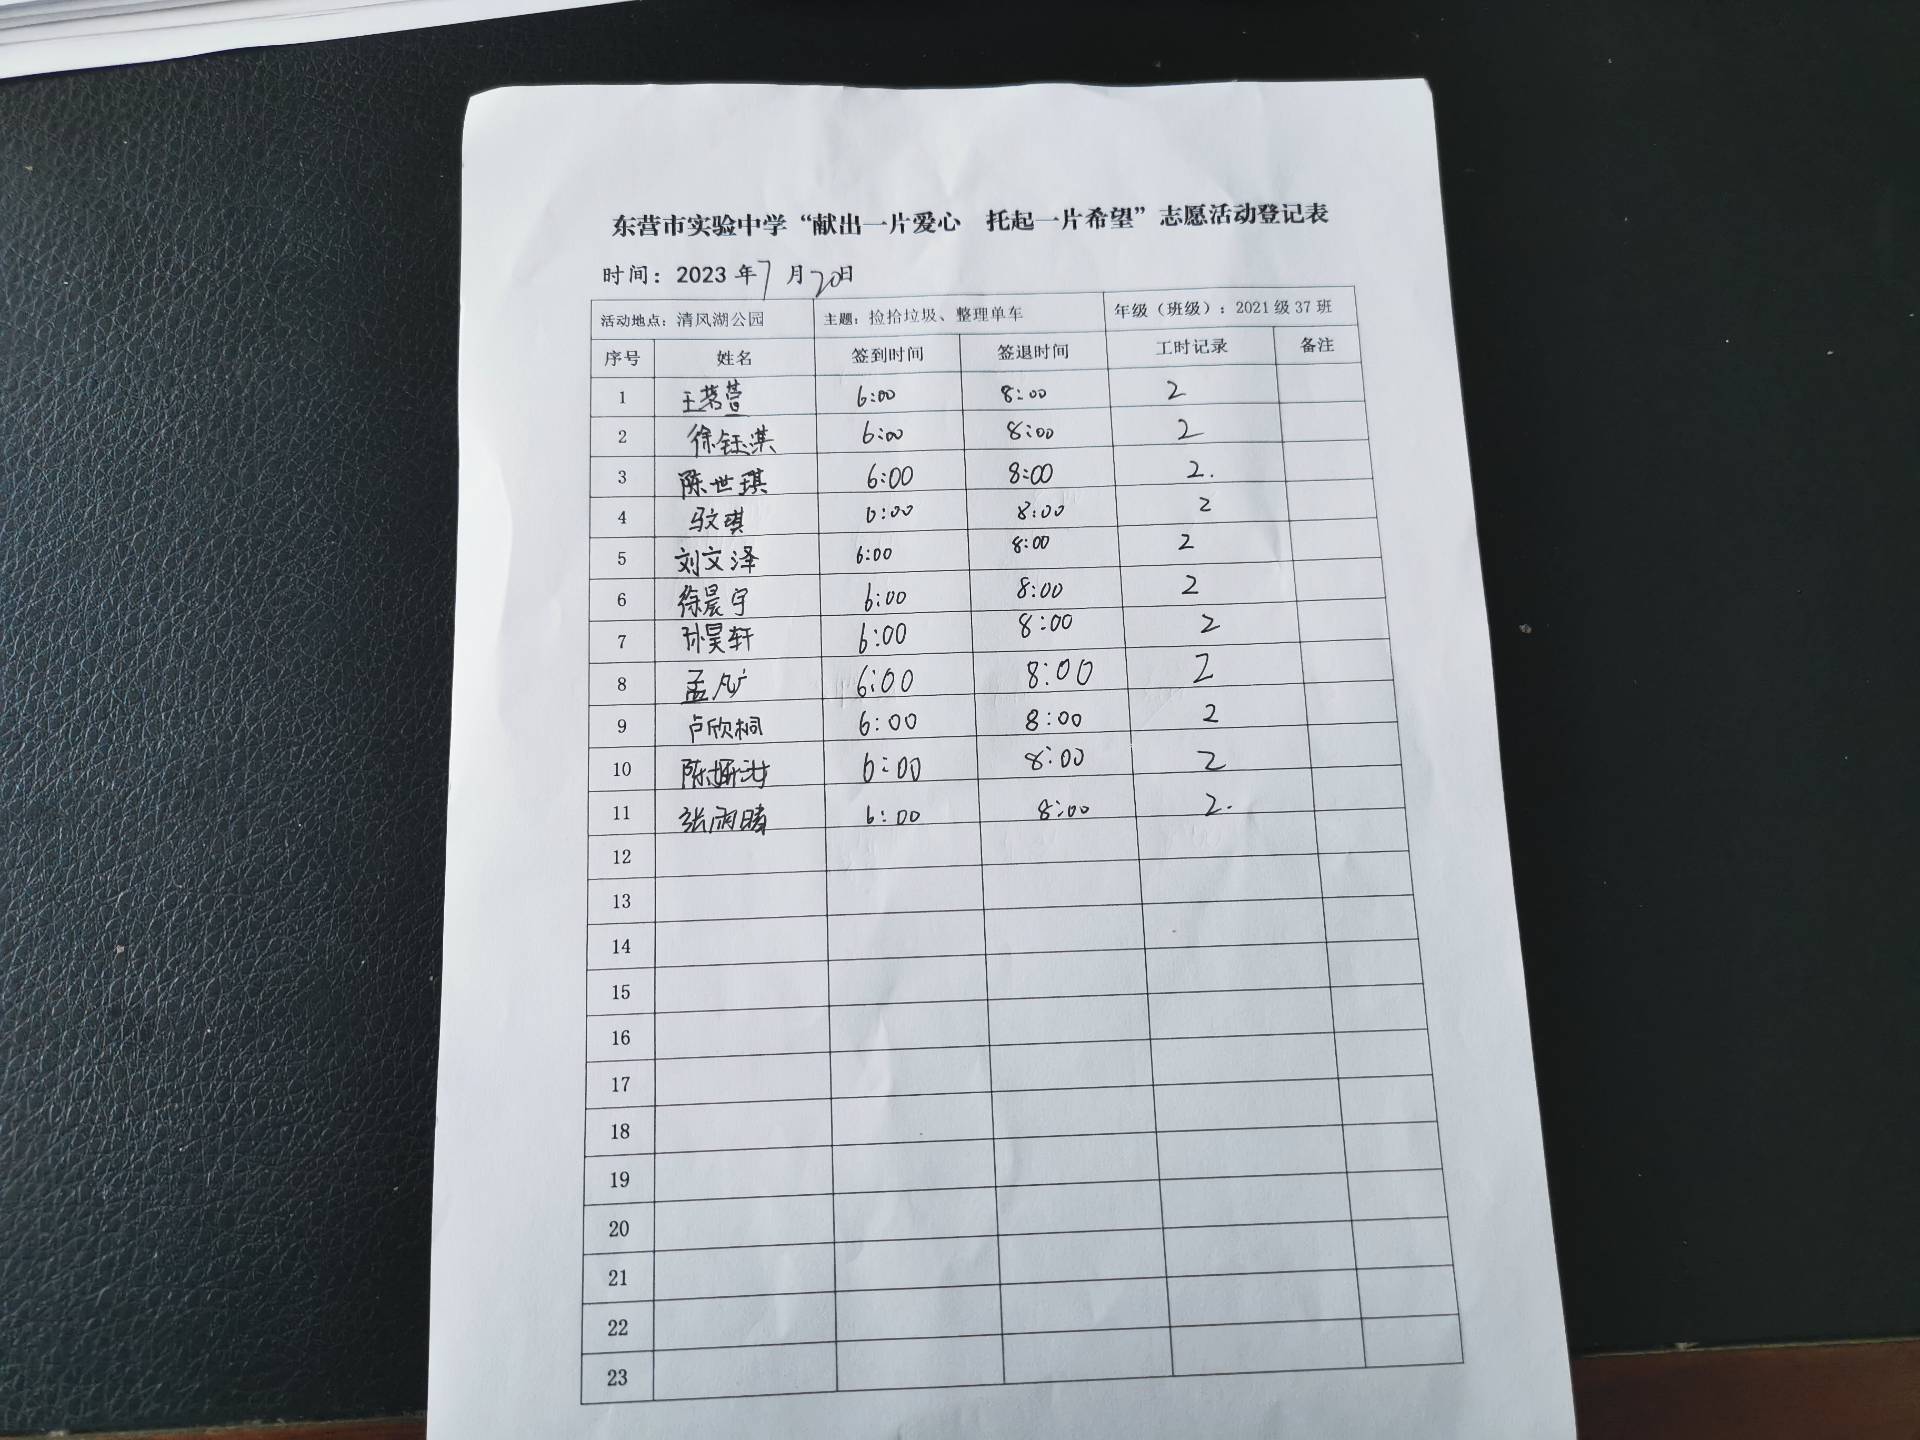 东营市实验中学“献出一片爱心 托起一片希望”志愿活动登记表
时间：2023年7月20日
活动地点：清风湖公园 主题：捡拾垃圾、整理单车 年级（班级）：2021级37班
序号 姓名 签到时间 签退时间 工时记录 备注
1 王茗萱 6:00 8:00 2
2 徐钰淇 6:00 8:00 2
3 陈世琪 6:00 8:00 2.
4 马文琪 6:00 8:00 2
5 刘文泽 6:00 8:00 2
6 徐晨宇 6:00 8:00 2
7 孙昊轩 6:00 8:00 2
8 孟凡 6:00 8:00 2
9 卢欣桐 6:00 8:00 2
10 陈 6:00 8:00 2
11 张雨晴 6:00 8:00 2.
12
13
14
15
16
17
18
19
20
21
22
23